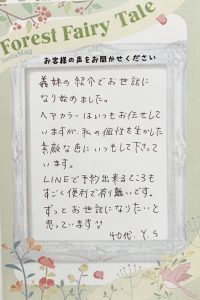 Forest Fairy Tale
InstaMag
お客様の声をお聞かせください
義妹の紹介でお世話に
なり始めました。
ヘアカラーはいつもお任せして
いますが、私の個性を生かした
素敵な色にいつもして下さって
います。
LINEで予約出来るところも
すごく便利で有り難いです。
ずっとお世話になりたいと
思っています
40代 Y.S